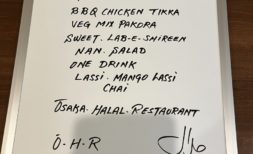 BBQ CHICKEN TIKKA
VEG MIX PAKORA
SWEET. LAB-E-SHIREEN
NAN. SALAD
ONE DRINK
LASSI. MANGO LASSI
CHAI
OSAKA. HALAL. RESTAURANT
O-H-R
حلال